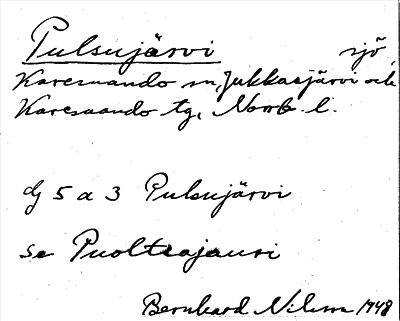 Pulsujärvi sjö
Karesuando sn, Jukkasjärvi och
Karesuando tg, Norrb. l.
dj 5 a 3 Pulsujärvi
se Puoltsajauri
Bernhard Nilsson 1948